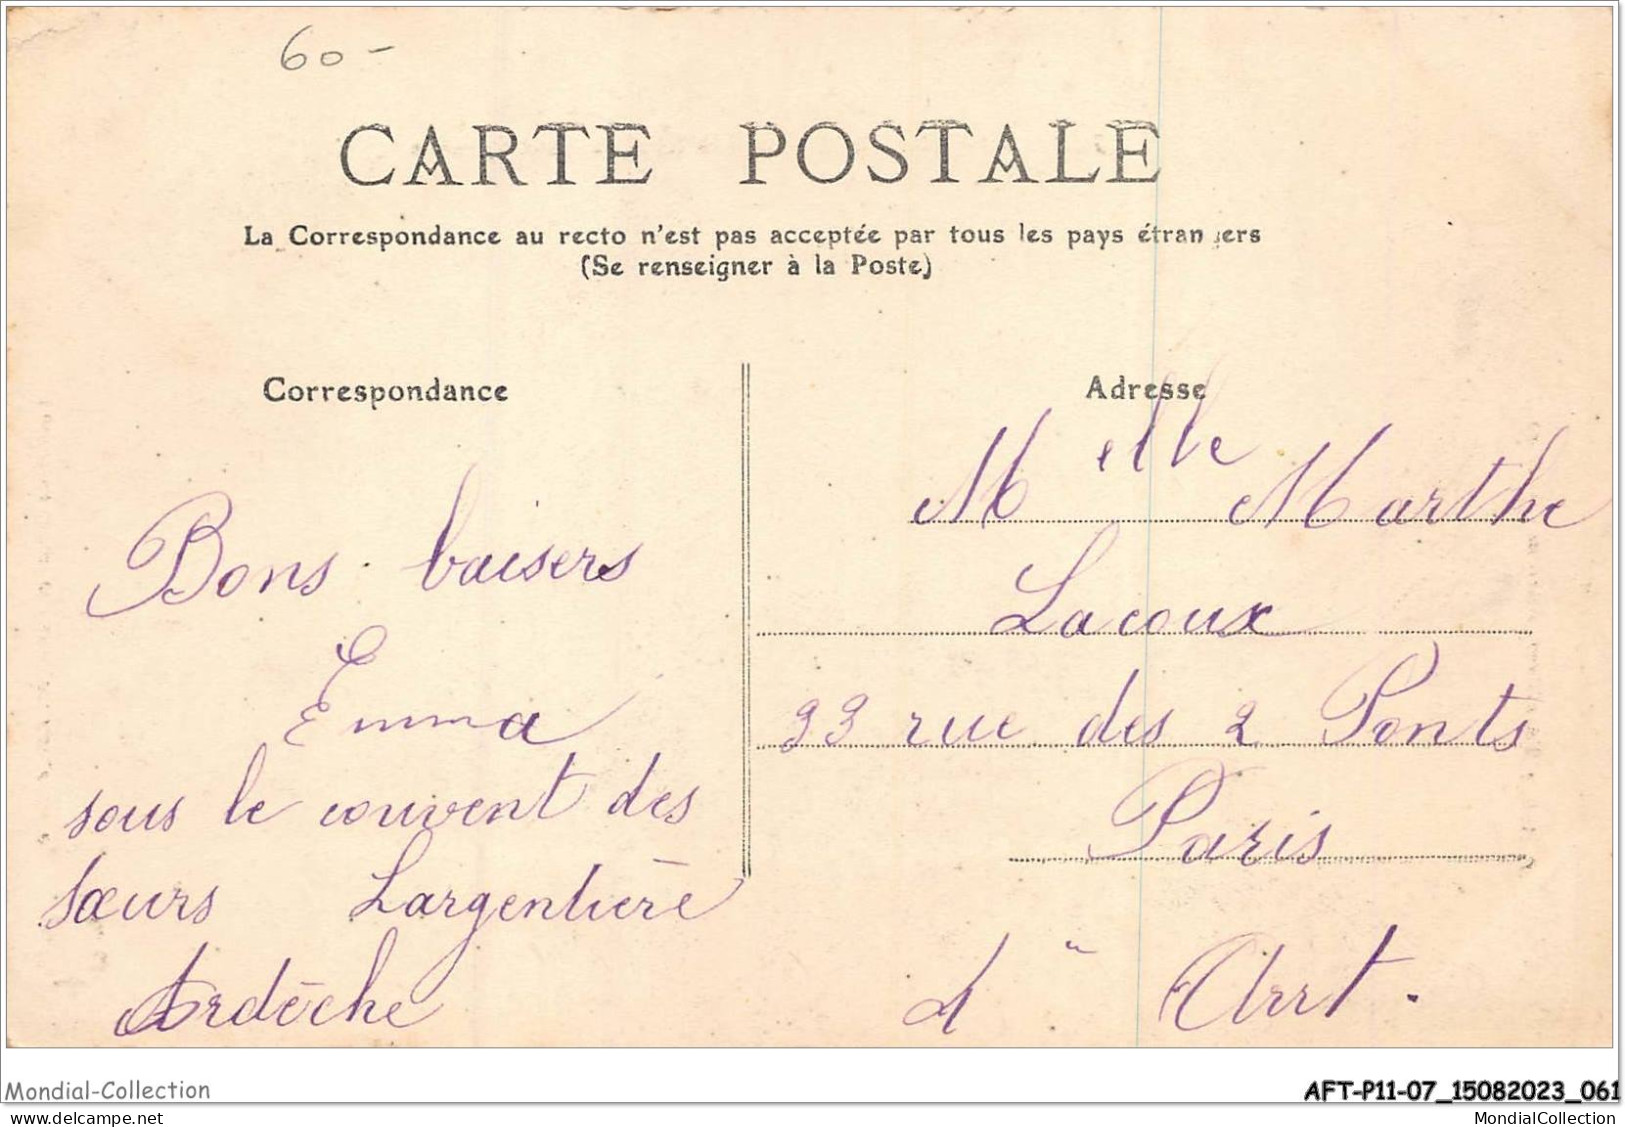 60-
CARTE POSTALE
La Correspondance au recto n'est pas acceptée par tous les pays étrangers
(Se renseigner à la Poste)
Correspondance
Bons baisers
Emma
sous le couvent des
sœurs Largentière
Ardèche
Adresse
Melle Marthe
Lacoux
33 rue des 2 Ponts
Paris
4" Arrt.
Mondial-Collection
AFT-P11-07_15082023_061
delcampe.net
MondialCollection